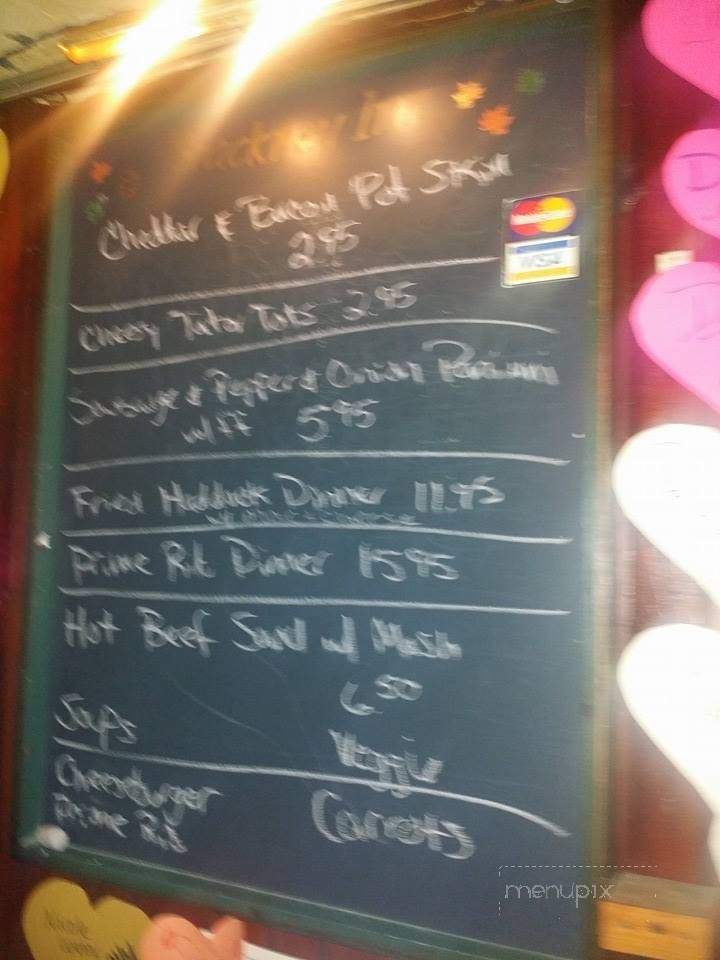 Cheddar & Bacon Pot Skin
2.95
MasterCard
VISA
Cheesy Tator Tots 2.95
Sausage & Pepper & Onion
w/ FF 5.95
Fried Haddock Dinner 11.95
Prime Rib Dinner 15.95
Hot Beef Sand w/ Mash
6.50
Soups
Veggie
Cheeseburger
Carrots
Prime Rib
menupix